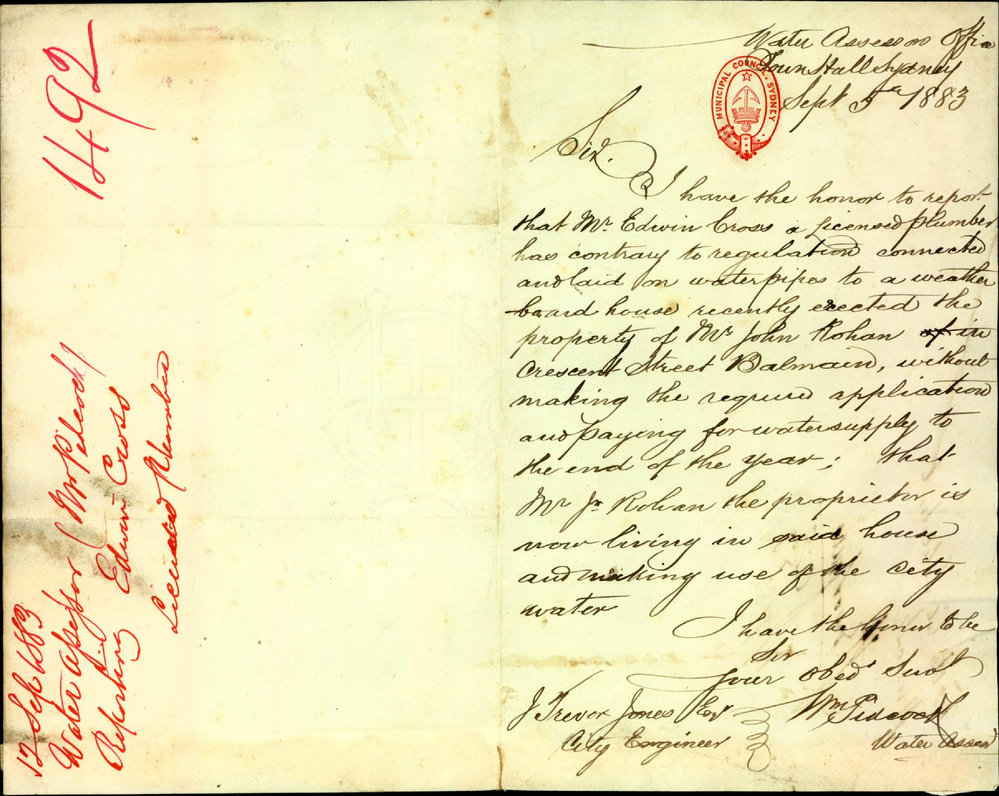 1492
12 Sep 1883
Water Assessor (Mr Pidcock)
Reporting Edwin Cross
Licensed Plumber
Water Assessors Office
Town Hall Sydney
Sept 5th 1883
MUNICIPAL COUNCIL, SYDNEY
Sir.
I have the honor to report
that Mr Edwin Cross a licensed plumber
has contrary to regulation connected
and laid on water pipes to a weather
board house recently erected the
property of Mr John Rohan of in
Crescent Street Balmain, without
making the required application
and paying for water supply to
the end of the year; that
Mr Jn Rohan the proprietor is
now living in said house
and making use of the city
water
I have the honor to be
Sir
your obedt Servt
Wm Pidcock
Water Assessr
J Trevor Jones Esr
City Engineer